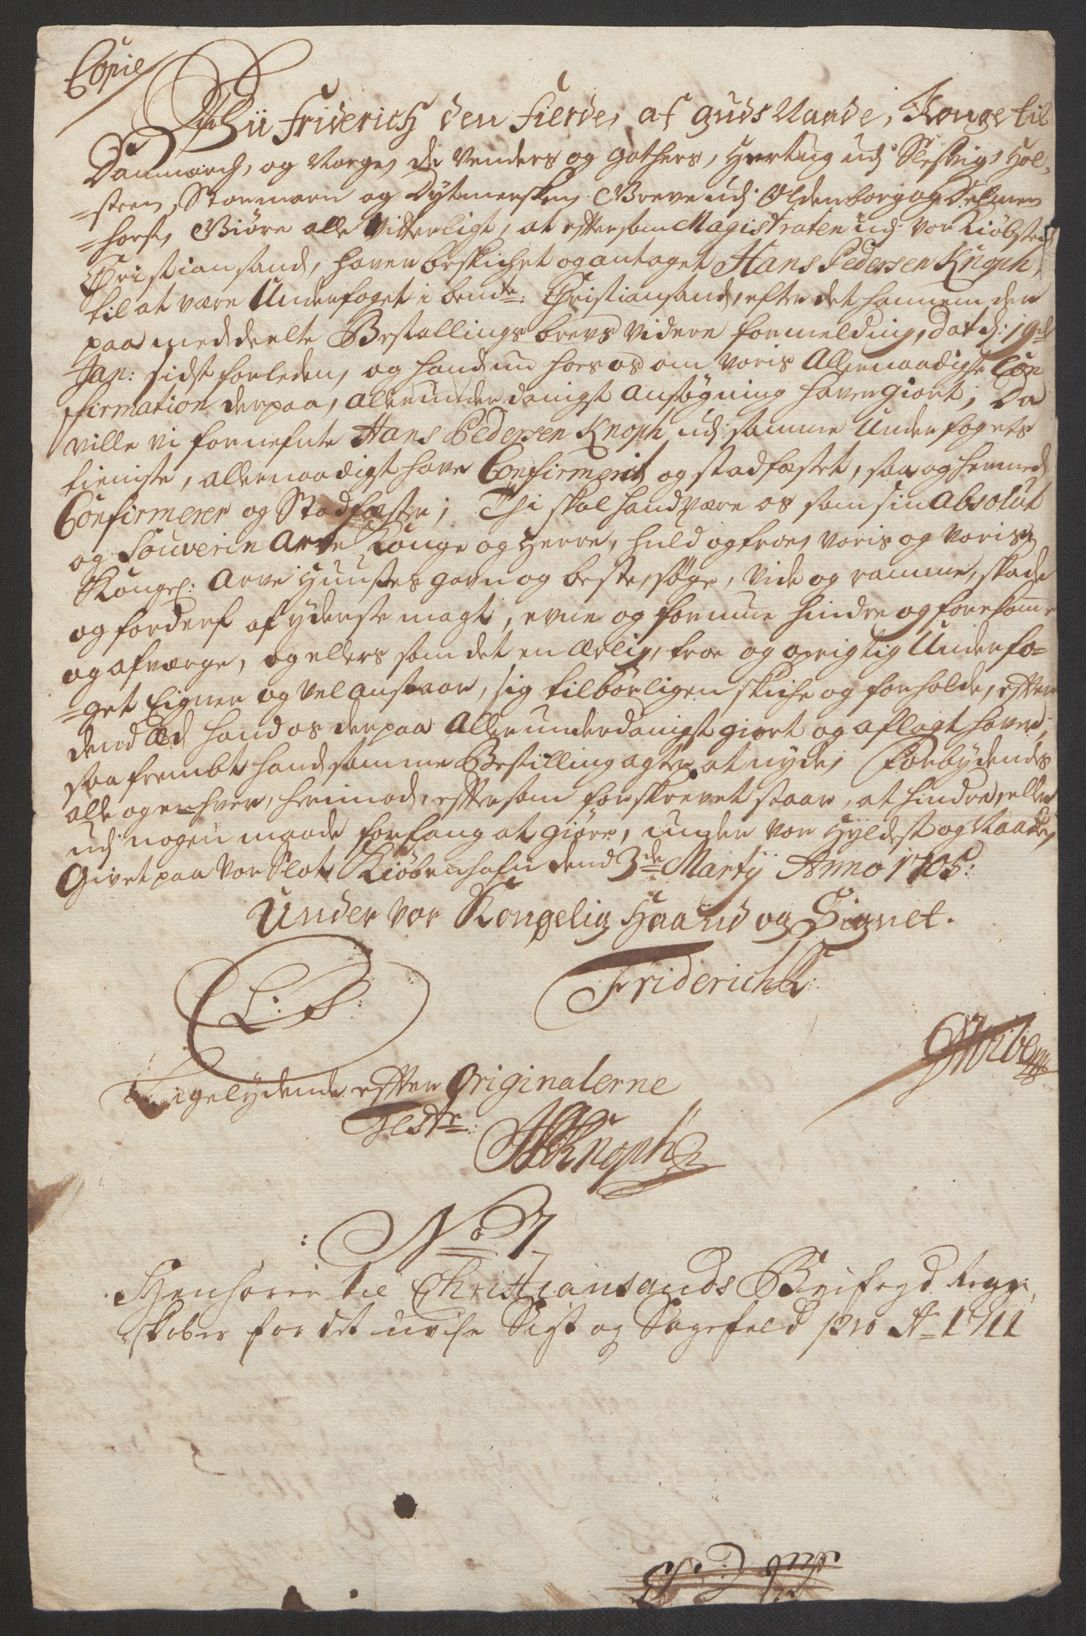 Copie
Wii Friderich den Fierde, af Guds Naade, Konge til
Danmarch, og Norge, de Venders og Gothers, Hertug udj Slesvig, Hol-
=steen, Stormarn og Dytmersken, Greve udj Oldenborg og Delmen
=horst, Giøre alle Vitterligt, at eftersom Magistraten udj vor Kiøbsted
Christiansand, haver beskichet og antaget Hans Pedersen Knoph,
til at være Underfoget i bemte: Christiansand, efter det hannem der
paa meddeelte Bestallings brevs videre formelding, dat: d: 19de
Jan: sidst forleden, og hand nu hos os om voris Allernaadigste Con
firmation derpaa, allerunderdanigst ansøgning haver giort; Da
ville vi fornefnte Hans Pedersen Knoph udj samme Underfogets
tieniste, allernaadigst have Confirmerit og stadfæstet, saa og hermed
Confirmerer og Stadfæster; Thi skal hand være os som sin Absolut
og Souverin Arve Konge og Herre, huld og troe, voris og voris
Kongel: Arve Huuses gavn og beste, søge, vide og ramme, skade
og forderf af yderste magt, evne og formue hindre og forekomme
og afværge, og ellers som det en ærlig, troe og oprigtig Underfo=
=get Eigner og vel anstaar, sig tilbørligen skiche og forholde, efter
dend Æd hand os derpaa Allerunderdanigst giort og aflagt haver,
saafrembt hand samme Bestilling agter at nyde; Forbydendes
alle og enhver, herimod, eftersom forskrevet staar, at hindre, eller
udj nogen maade forfang at giøre, under vor Hyldest og Naade,
Givet paa vor Slot Kiøbenhafn dend 3de Martij Anno 1705:
Under vor Kongelig Haand og Signet.
L: S:
Friderich R:
GWibe
Ligelydende efter Originalerne
Testr:
HPKnoph
No 7
Henhører til Christiansands Beifogd Regn-
skaber for det uvise Sigt og Sagefald pro Ao 1711